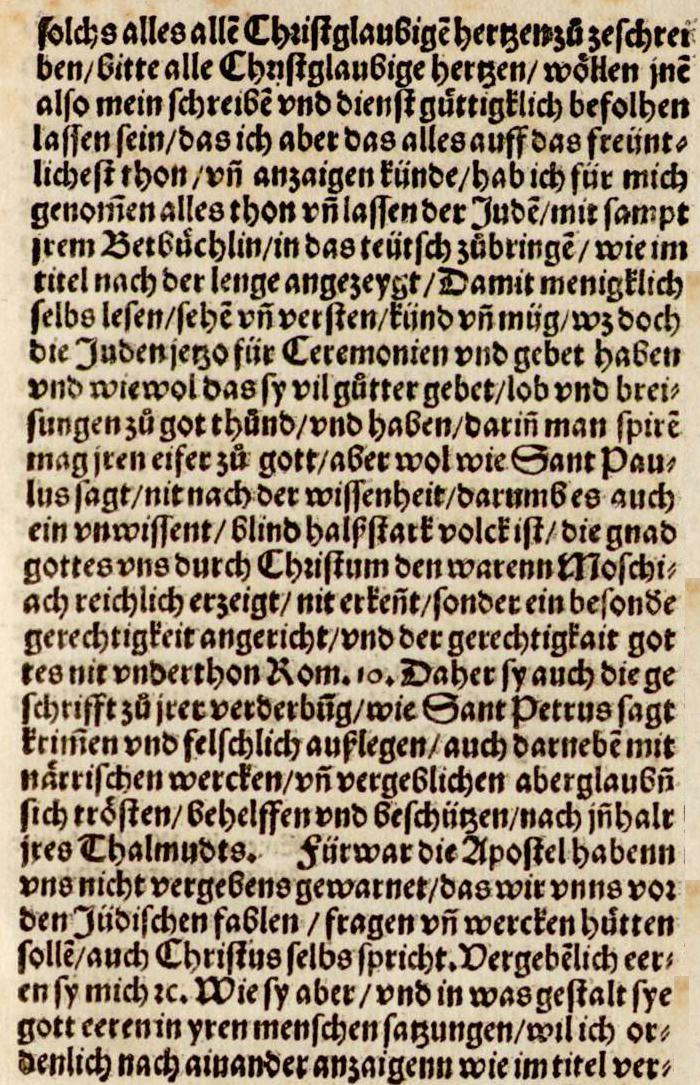 solchs alles allẽ Christglaubigẽ hertzen zů zeschrei
ben/bitte alle Christglaubige hertzen/ wöllen jnẽ
also mein schreibẽ vnd dienst gůttigklich befolhen
lassen sein/das ich aber das alles auff das freünt⸗
lichest thon/vñ anzaigen künde/hab ich für mich
genom̃en alles thon vñ lassen der Judẽ/mit sampt
jrem Betbůchlin/in das teütsch zůbringẽ/ wie im
titel nach der lenge angezeygt/Damit menigklich
selbs lesen/sehẽ vñ versten/künd vñ müg/wz doch
die Juden jetzo für Ceremonien vnd gebet haben
vnd wiewol das sy vil gůtter gebet/lob vnd brei⸗
sungen zů got thůnd/vnd haben/dariñ man spirẽ
mag jren eifer zů gott/aber wol wie Sant Pau⸗
lus sagt/nit nach der wissenheit/darumb es auch
ein vnwissent/ blind halßstark volck ist/die gnad
gottes vns durch Christum den warenn Moschi⸗
ach reichlich erzeigt/ nit erkeñt/sonder ein besonde
gerechtigkeit angericht/vnd der gerechtigkait got
tes nit vnderthon Rom. 10. Daher sy auch die ge
schrifft zů jrer verderbũg/wie Sant Petrus sagt
krim̃en vnd felschlich außlegen/auch darnebẽ mit
närrischen wercken/vñ vergeblichen aberglaubñ
sich trösten/ behelffen vnd beschützen/nach jñhalt
jres Thalmudts. Fürwar die Apostel habenn
vns nicht vergebens gewarnet/das wir vnns vor
den Jüdischen fablen / fragen vñ wercken hůtten
sollẽ/auch Christus selbs spricht. Vergebẽlich eer⸗
en sy mich ꝛc. Wie sy aber/ vnd in was gestalt sye
gott eeren in yren menschen satzungen/wil ich or⸗
denlich nach ainander anzaigenn wie im titel ver⸗